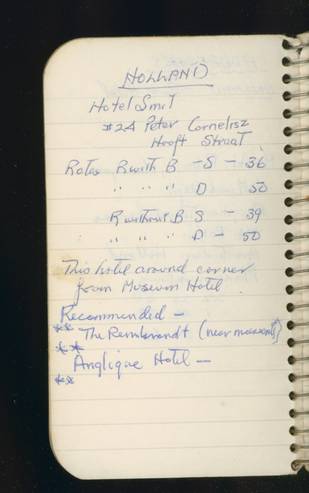 HOLLAND
Hotel Smit
#24 Peter Cornelisz
Hooft Straat
Rates R with B - S - 36
" " " D 50
R without B S - 39
" " " D - 50
This hotel around corner
from Museum Hotel
Recommended -
** The Rembrandt (near museum)
**
Anglique Hotel -
**